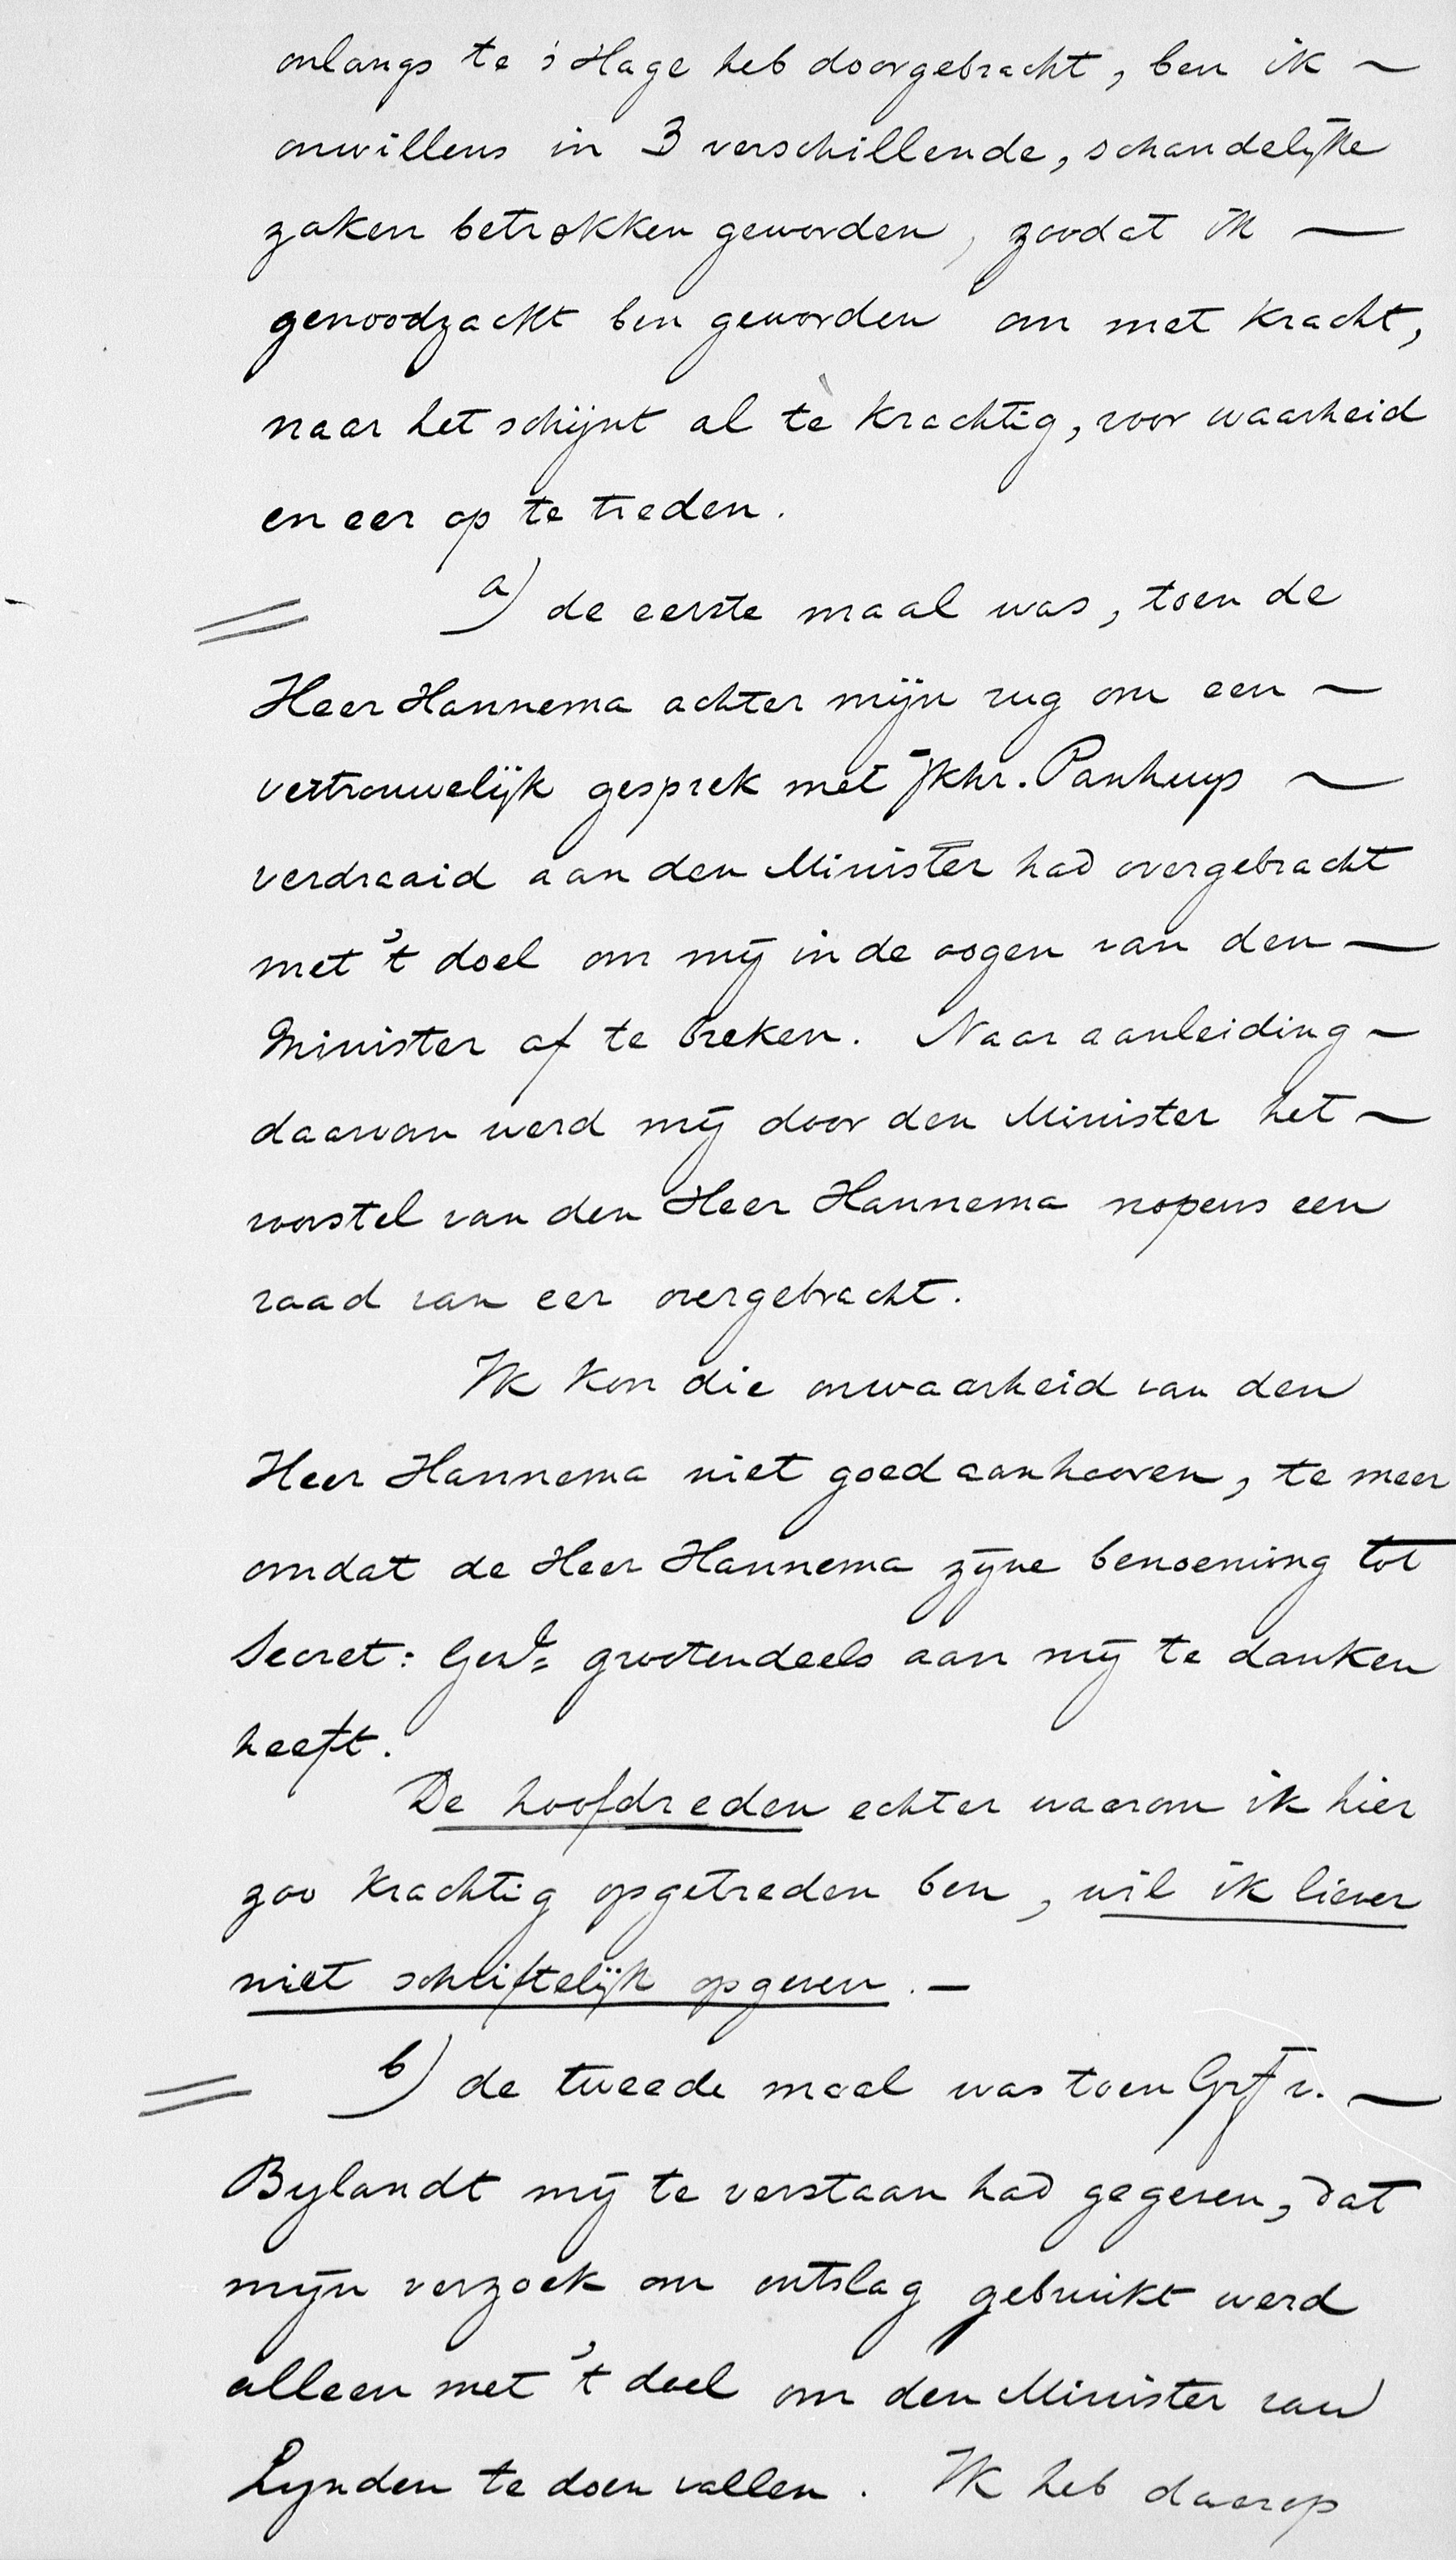 onlangs te 's Hage heb doorgebracht, ben ik ~
onwillens in 3 verschillende, schandelijke
zaken betrokken geworden, zoodat ik —
genoodzackt ben geworden om met kracht,
naar het schijnt al tè krachtig, voor waarheid
en eer op te treden.
a) de eerste maal was, toen de
Heer Hannema achter mijn rug om een ~
vertrouwelijk gesprek met Jkhr. Panhuys ~
verdraaid aan den Minister had overgebracht
met 't doel om mij in de oogen van den —
Minister af te breken. Naar aanleiding ~
daarvan werd mij door den Minister het ~
voorstel van den Heer Hannema nopens een
raad van eer overgebracht.
Ik kon die onwaarheid van den
Heer Hannema niet goed aanhooren, te meer
omdat de Heer Hannema zijne benoeming tot
Secret: Genl= grootendeels aan mij te danken
heeft.
De hoofdreden echter waarom ik hier
zoo krachtig opgetreden ben, wil ik liever
niet schriftelijk opgeven. —
b) de tweede maal was toen Grf v. —
Bylandt mij te verstaan had gegeven, dat
mijn verzoek om ontslag gebruikt werd
alleen met 't doel om den Minister van
Lynden te doen vallen. Ik heb daarop